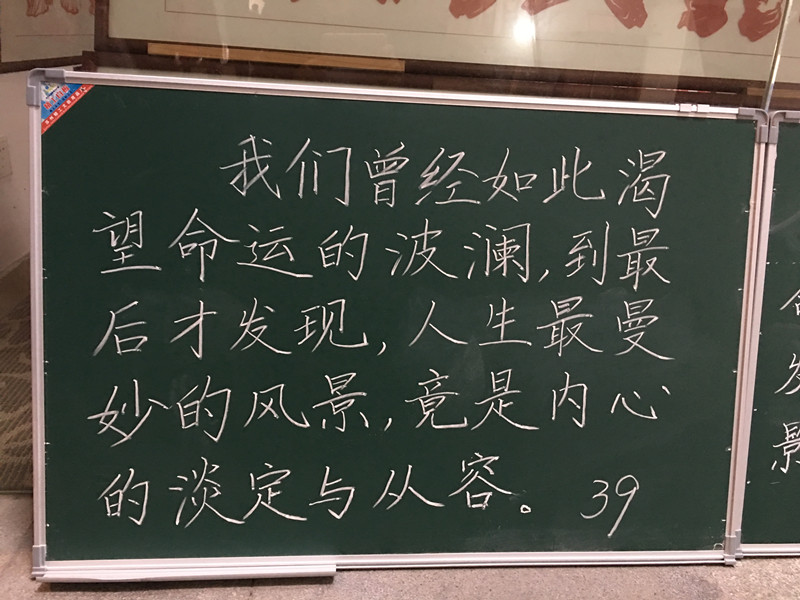 我们曾经如此渴
望命运的波澜,到最
后才发现,人生最曼
妙的风景,竟是内心
的淡定与从容。39